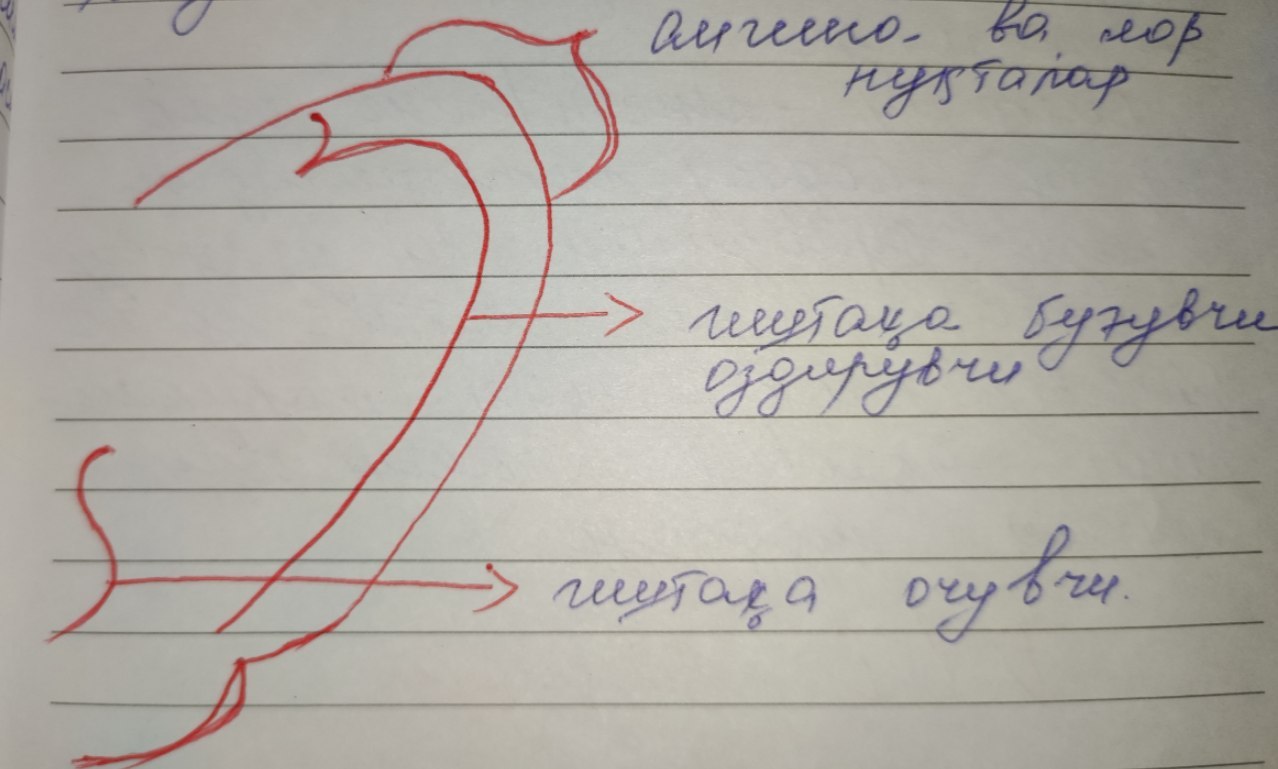 ангина- ва лор
нуқталар
иштаҳа бузувчи
оздирувчи
иштаҳа очувчи.